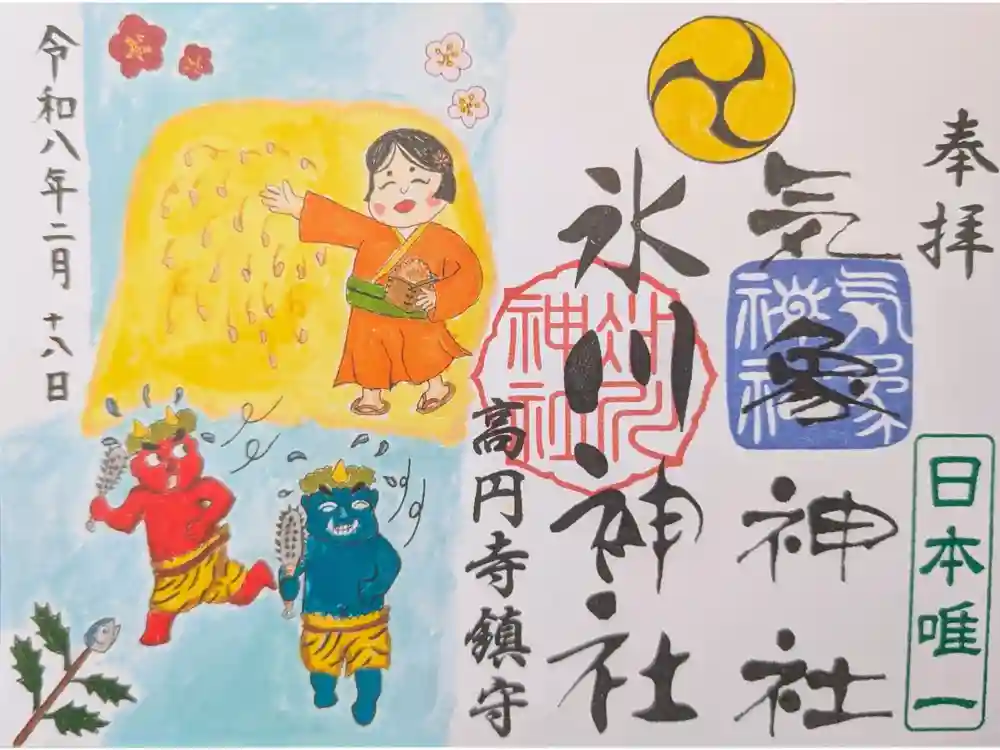 奉拝
日本唯一
気象神社
気象神社
氷川神社
氷川神社
高円寺鎮守
令和八年二月十八日